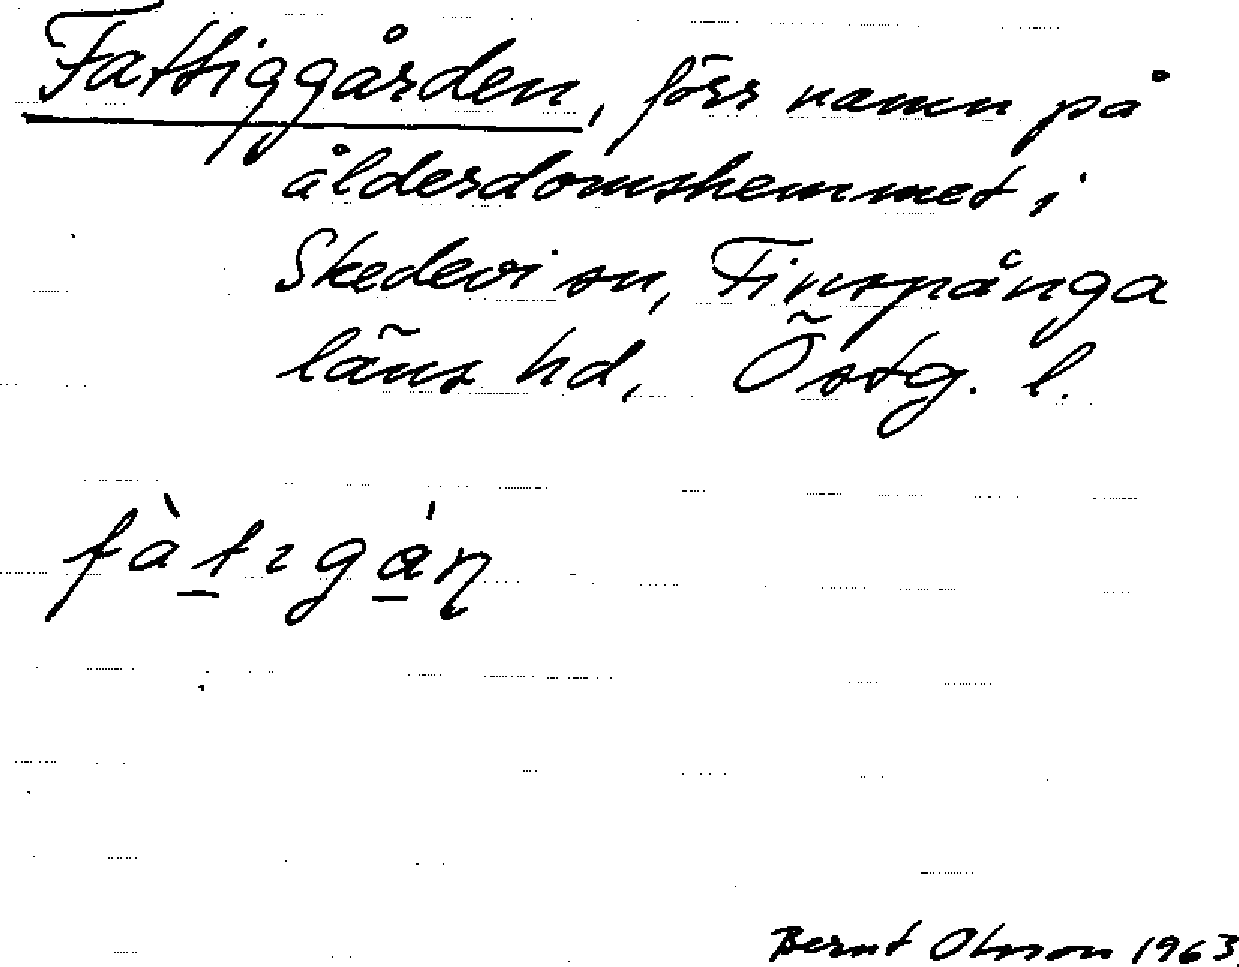 Fattiggården, förr namn på
ålderdomshemmet i
Skedevi sn, Finspånga
läns hd, Östg. l.
fàtɩgán
Bernt Olsson 1963